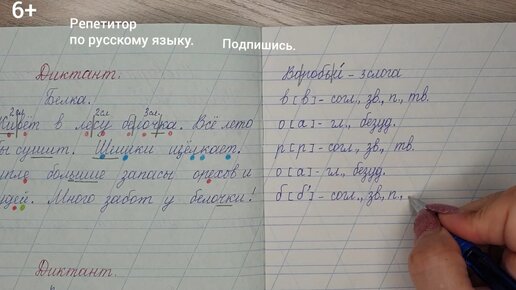 6+
Репетитор
по русскому языку.
Подпишись.
Диктант.
Белка.
2сл. 2сл. 3сл.
Живёт в лесу белочка. Всё лето
бы сушит. Шишки щёлкает.
пле большие запасы орехов и
удей. Много забот у белочки!
Диктант.
Воробьи - 3слога
в [в] - согл., зв., п., тв.
о [а] - гл., безуд.
р [р] - согл., зв., тв.
о [а] - гл., безуд.
б [б'] - согл., зв., п.,